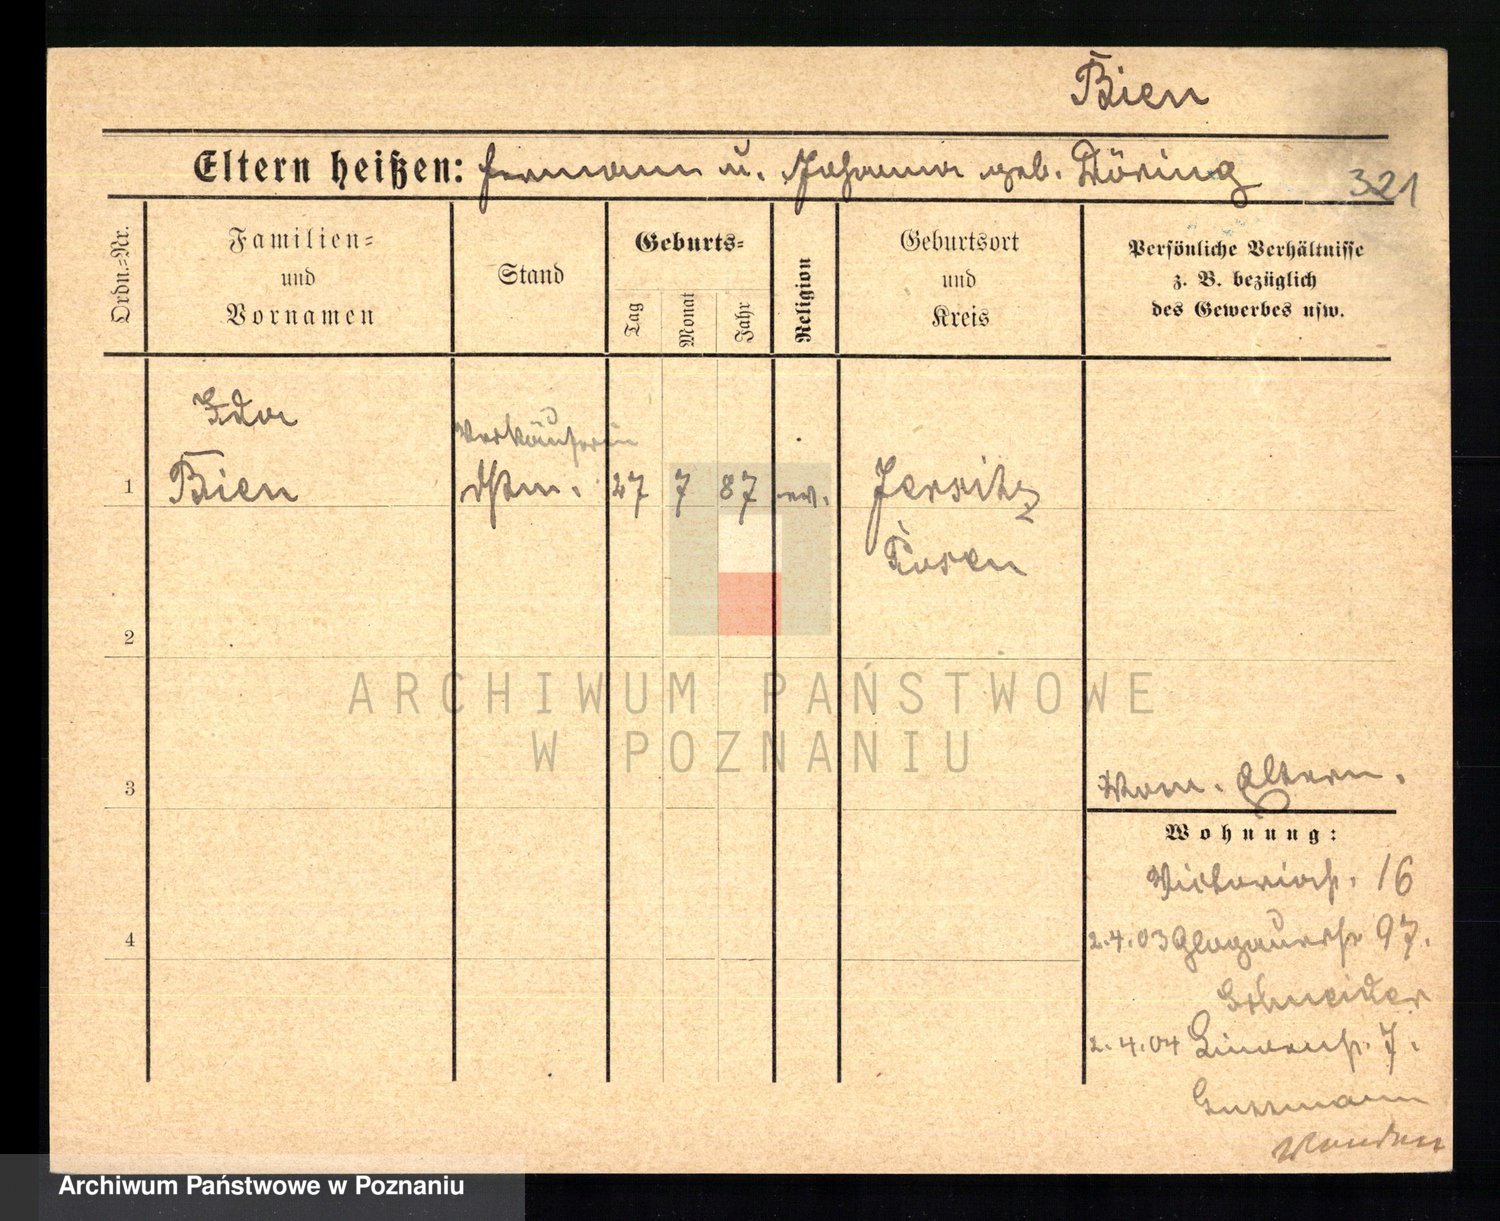 Bien
Eltern heißen: Hermann u. Johanna geb. Döring
321
Ordn.-Nr.
Familien-
und
Vornamen
Stand
Geburts-
Tag
Monat
Jahr
Religion
Geburtsort
und
Kreis
Persönliche Verhältnisse
z. B. bezüglich
des Gewerbes usw.
Verkäuferin
1 Bien 27 7 87 ev. Jersitz
Posen
2
ARCHIWUM PAŃSTWOWE
W POZNANIU
3
Eltern.
Wohnung:
Victoriastr. 16
4
2.4.03 Glogauerstr 97.
Schneider
2.4.04 7.
Wenden
Archiwum Państwowe w Poznaniu